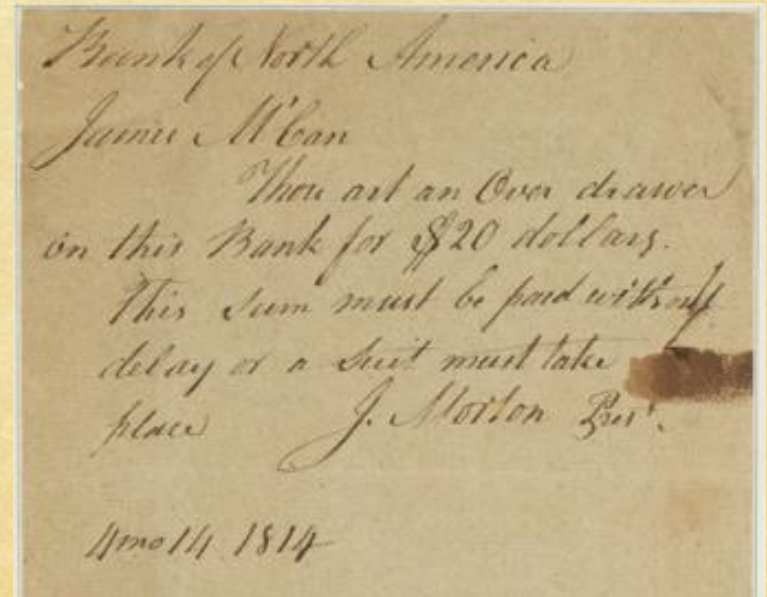 Bank of North America
James M'Can
Thou art an Over drawer
on this Bank for $20 dollars.
This sum must be paid without
delay or a suit must take
place J. Morton Prest.
4mo 14 1814